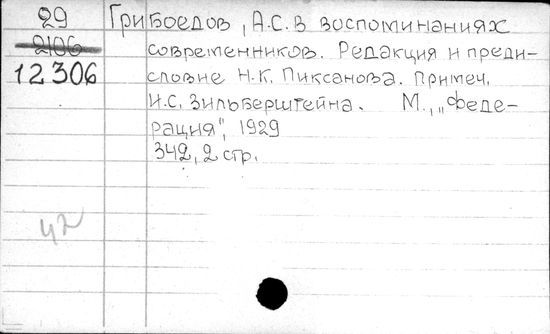 29 Грибоедов, А.С. в воспоминаниях
2106 современников. Редакция и преди-
12306 словие Н.К. Пиксанова. Примеч.
И.С. Зильберштейна. М., „Феде-
рация", 1929
342, 2 стр.
42